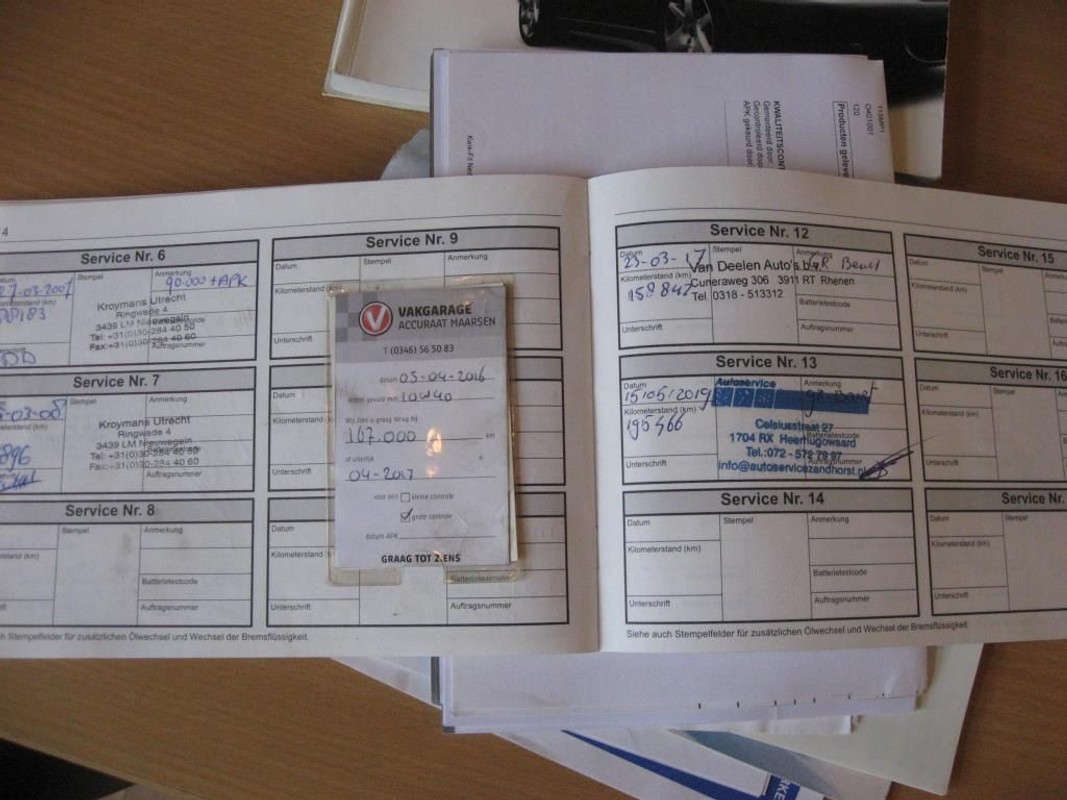 11SMP1
O401001
120
Producten geleve
KWALITEITSCONT
Gemonteerd door
Gecontroleerd door
APK gekeurd door
Kwik-Fit Ned
4
Service Nr. 6
Datum
Stempel
Anmerkung
90.000 + APK
Kroymans Utrecht
Ringwade 4
3439 LM Nieuwegein
Tel: +31(0)30-284 40 50
Fax:+31(0)30-284 40 60
Auftragsnummer
Service Nr. 7
Kroymans Utrecht
Ringwade 4
3439 LM Nieuwegein
Tel: +31(0)30-284 40 50
Fax:+31(0)30-284 40 60
Auftragsnummer
Service Nr. 8
Datum
Stempel
Anmerkung
stand (km)
Batterietestcode
Unterschrift
Auftragsnummer
Service Nr. 9
Datum
Stempel
Anmerkung
Kilometerstand (km)
Unterschrift
Datum
Kilometerstand
Unterschrift
Datum
Kilometerstand (km)
Batterietestcode
Unterschrift
Auftragsnummer
VAKGARAGE
ACCURAAT MAARSEN
T (0346) 56 50 83
datum 05-04-2016
motor gevuld met 10W40
Wij zien u graag terug bij
167.000 km
of uiterlijk
04-2017
voor een kleine controle
grote controle
datum APK
GRAAG TOT ZIENS
Service Nr. 12
Datum
Stempel
Anmerkung
23-03-17
Kilometerstand (km)
158842
Van Deelen Auto's b.v.
gR Beurt
Cuneraweg 306 3911 RT Rhenen
Tel. 0318 - 513312
Batterietestcode
Unterschrift
Auftragsnummer
Service Nr. 13
Datum
Autoservice
Anmerkung
15/05/2019
gR Beurt
Kilometerstand (km)
195466
Celsiusstraat 27
1704 RX Heerhugowaard
Batterietestcode
Tel.:072 - 572 79 97
info@autoservicezandhorst.nl
Unterschrift
Auftragsnummer
Service Nr. 14
Datum
Stempel
Anmerkung
Kilometerstand (km)
Batterietestcode
Unterschrift
Auftragsnummer
Service Nr. 15
Datum
Stempel
Kilometerstand (km)
Unterschrift
Service Nr. 16
Datum
Stempel
Kilometerstand (km)
Unterschrift
Service Nr.
Datum
Stempel
Kilometerstand (km)
Unterschrift
ch Stempelfelder für zusätzlichen Ölwechsel und Wechsel der Bremsflüssigkeit.
Siehe auch Stempelfelder für zusätzlichen Ölwechsel und Wechsel der Bremsflüssigkeit.